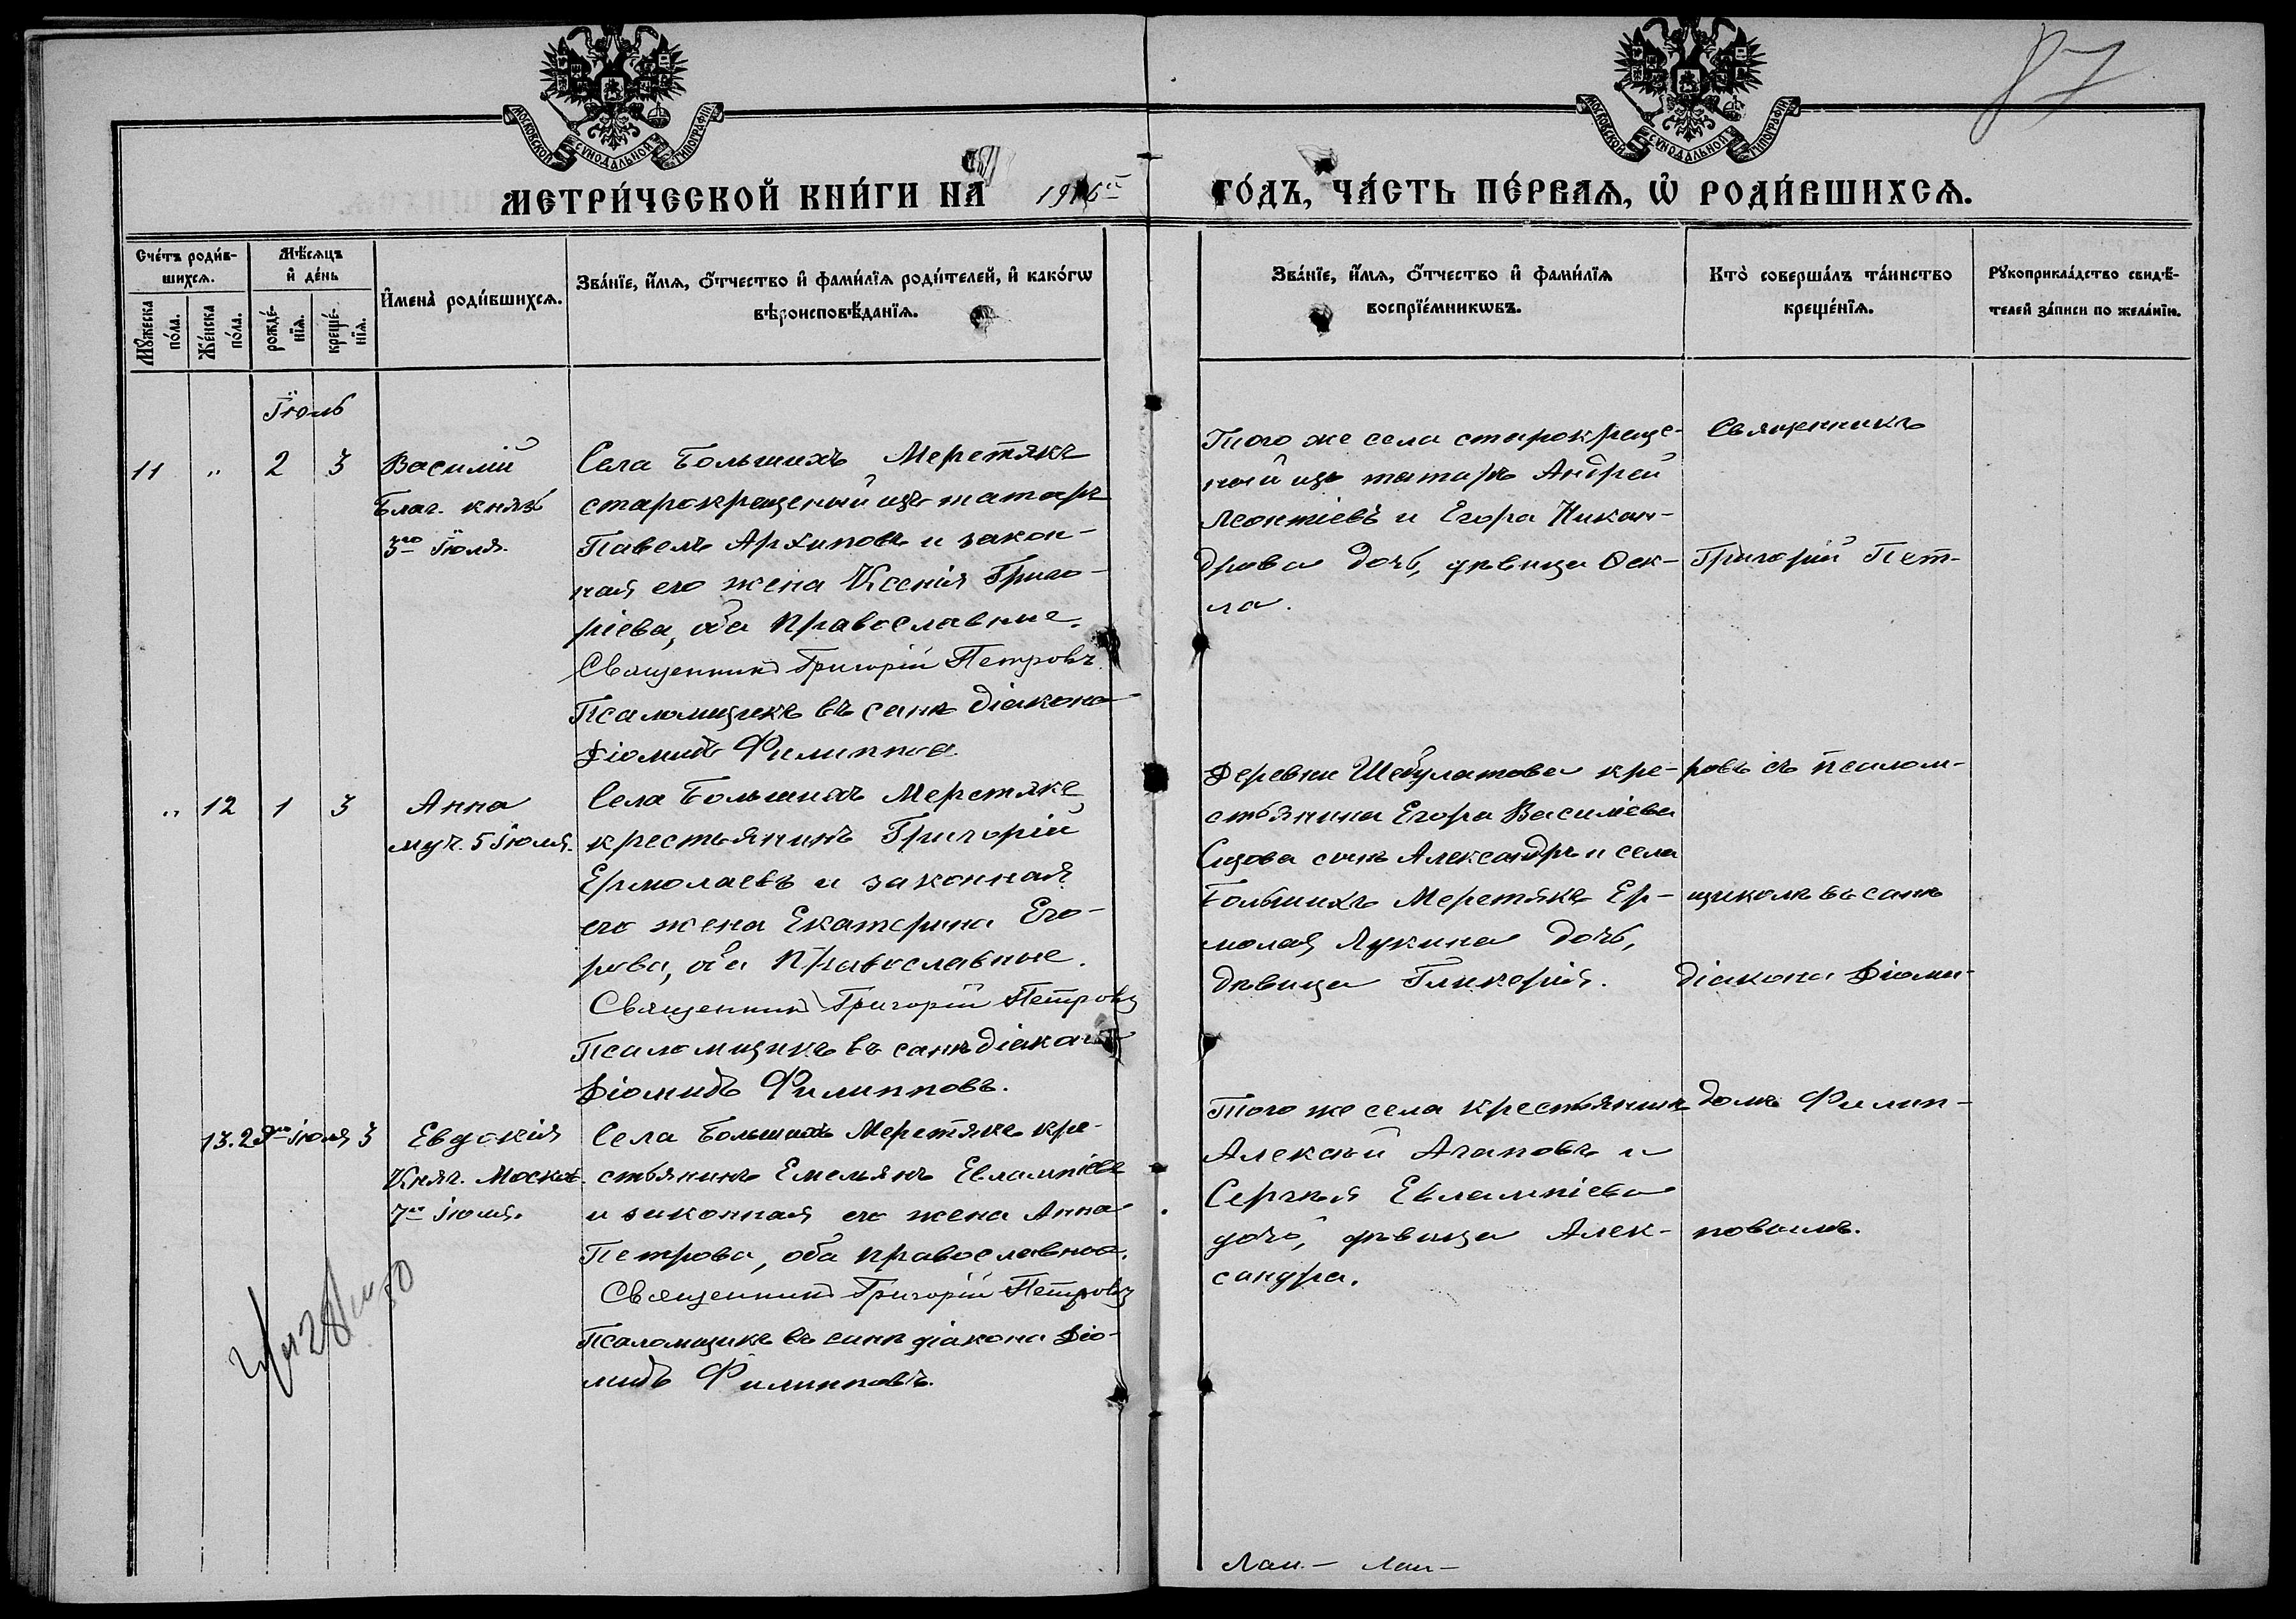 МОСКОВСКОЙ СѴНОДАЛЬНОЙ ТИПОГРАФІИ
МОСКОВСКОЙ СѴНОДАЛЬНОЙ ТИПОГРАФІИ
87
МЕТРИ́ЧЕСКОЙ КНИ́ГИ НА 1916й ГО́ДЪ, ЧА́СТЬ ПЕ́РВАѦ, Ѡ҆ РОДИ́ВШИХСѦ.
Сче́тъ роди́в-
шихсѧ.
Мꙋжеска по́ла.
Же́нска по́ла.
Мѣ́сѧцъ
и҆ де́нь
рожде́-
нїѧ.
креще́-
нїѧ.
И҆мена̀ роди́вшихсѧ.
Зва́нїе, и҆́мѧ, ѻ҆́тчество и҆ фами́лїѧ роди́телей, и҆ како́гѡ
вѣроисповѣ́данїѧ.
Зва́нїе, и҆́мѧ, ѻ҆́тчество и҆ фами́лїѧ
воспрїе́мникѡвъ.
Кто̀ соверша́лъ та́инство
креще́нїѧ.
Рꙋкоприкла́дство свидѣ́-
телей за́писи по жела́нїю.
Іюль
11 " 2 3
Василій
Благ. князь
3го Іюля.
Села Большихъ Меретякъ
старокрещеный изъ татаръ
Павелъ Архиповъ и закон-
ная его жена Ксенія Григо-
ріева, оба Православные.
Священникъ Григорій Петровъ
Псаломщикъ въ санѣ діакона
Діомидъ Филипповъ
Того же села старокреще-
ный изъ татаръ Андрей
Леонтіевъ и Егора Никан-
дрова дочь, дѣвица Ѳек-
ла.
Священникъ
Григорій Пет-
" 12 1 3
Анна
муч. 5 Іюля.
Села Большихъ Меретякъ
крестьянинъ Григорій
Ермолаевъ и законная
его жена Екатерина Его-
рова, оба Православные.
Священникъ Григорій Петровъ
Псаломщикъ въ санѣ діакона
Діомидъ Филипповъ.
Деревни Шебулатова кре-
стьянина Егора Василіева
Сизова сынъ Александръ и села
Большихъ Меретякъ Ер-
молая Лукина дочь,
дѣвица Гликерія.
ровъ съ псалом-
щикомъ въ санѣ
діакона Діоми-
13. 29го іюня 3
Евдокія
Княг. Москов.
7го іюля.
Села Большихъ Меретякъ кре-
стьянинъ Емельянъ Евлампіевъ
и законная его жена Анна
Петрова, оба православные.
Священникъ Григорій Петровъ
Псаломщикъ въ санѣ діакона Діо-
мидъ Филипповъ.
Того же села крестьянинъ
Алексѣй Агаповъ и
Сергѣя Евлампіева
дочь, дѣвица Алек-
сандра.
домъ Филип-
повымъ.